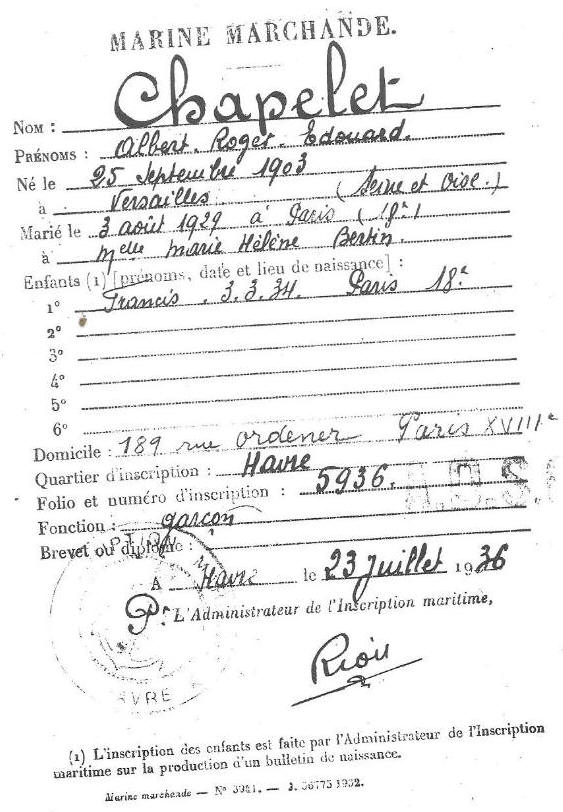 MARINE MARCHANDE.
Nom : Chapelet
Prénoms : Albert. Roger. Edouard.
Né le 25 Septembre 1903
à Versailles (Seine et Oise.)
Marié le 3 août 1929 à Paris (18e)
à Melle Marie Hélène Bertin.
Enfants (1) [prénoms, date et lieu de naissance] :
1° Francis. 3.3.34. Paris 18e
2°
3°
4°
5°
6°
Domicile : 189 rue Ordener Paris XVIIIe
Quartier d'inscription : Havre
Folio et numéro d'inscription : 5936.
Fonction : garçon
Brevet ou diplôme :
A Havre le 23 Juillet 1936
Pr. L'Administrateur de l'Inscription maritime,
(1) L'inscription des enfants est faite par l'Administrateur de l'Inscription
maritime sur la production d'un bulletin de naissance.
Marine marchande — N° 3941. — J. 36775 1932.